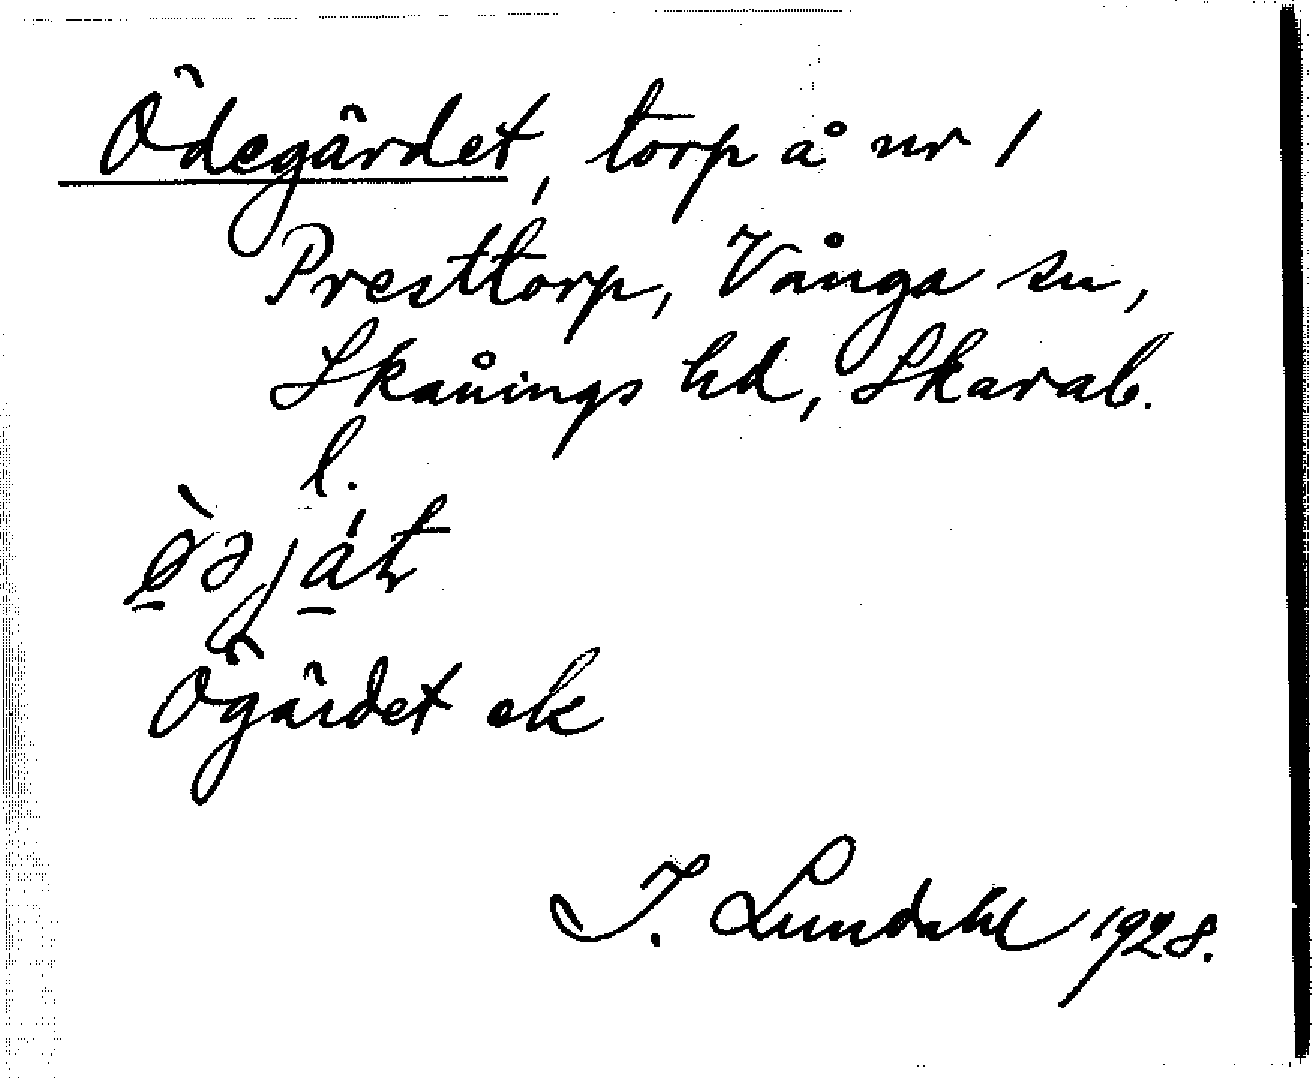 Ödegärdet, torp å nr 1
Presttorp, Vånga sn,
Skånings hd, Skarab.
l.
Ögärdet ek
I. Lundahl 1928.